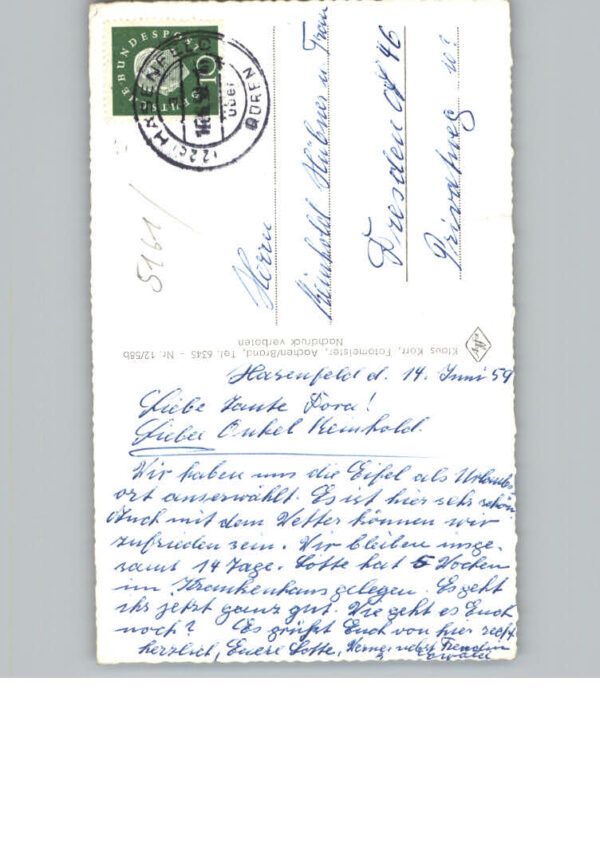 E·BUNDESPOST
10
HASENFELD
über
DÜREN
(22c)
5161/
Herrn
Reinhold Hübner u Frau
Dresden A 46
Privatweg
Klaus Korr, Fotomeister, Aachen/Brand, Tel. 6345 – Nr. 12/58b
Nachdruck verboten
Hasenfeld d. 14. Juni 59
Liebe Tante Dora!
Lieber Onkel Reinhold.
Wir haben uns die Eifel als Urlaubs
ort auserwählt. Es ist hier sehr schön
Auch mit dem Wetter können wir
zufrieden sein. Wir bleiben insge-
samt 14 Tage. Lotte hat 5 Wochen
im Krankenhaus gelegen. Es geht
ihr jetzt ganz gut. Wie geht es Euch
noch? Es grüßt Euch von hier recht
herzlich, Euere Lotte, Werner nebst